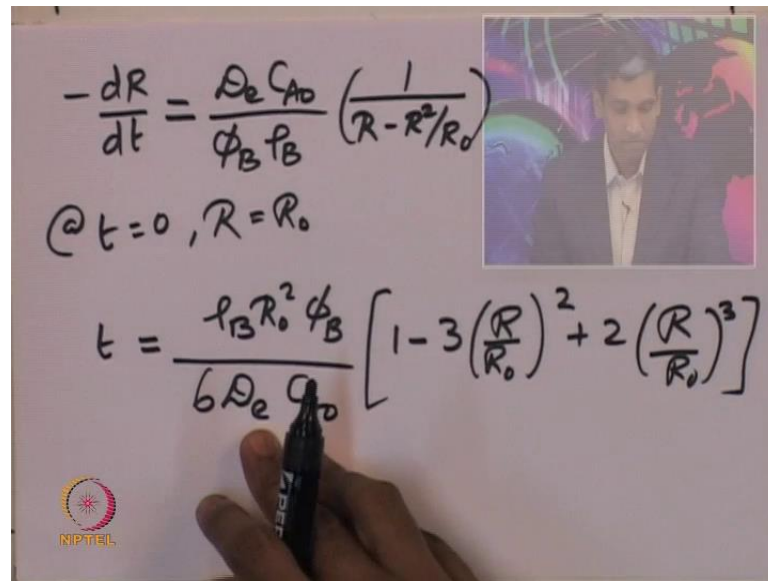 -dR/dt = De CA0/ϕB ρB (1/R - R²/R0)
@ t = 0, R = R0
t = ρB R0² ϕB/6 De CA0 [1 - 3 (R/R0)² + 2 (R/R0)³]
NPTEL